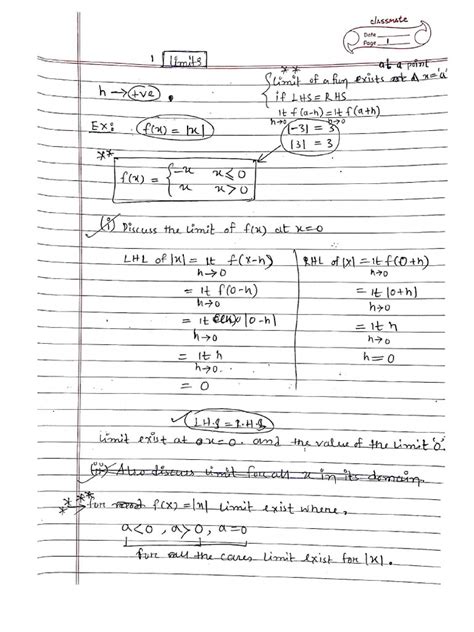 classmate
Date
Page 1
1 Limits
h → +ve .
** Limit of a fun exists at x='a'
at a point
if LHS = RHS
lt f(a-h) = lt f(a+h)
h→0 h→0
Ex: f(x) = |x|
|-3| = 3
|3| = 3
**
f(x) = { -x x ≤ 0
x x > 0
(i) Discuss the limit of f(x) at x=0
LHL of |x| = lt f(x-h)
h→0
= lt f(0-h)
h→0
= lt |0-h|
h→0
= lt h
h→0.
= 0
RHL of |x| = lt f(0+h)
h→0
= lt |0+h|
h→0
= lt h
h→0
h = 0
L.H.S = R.H.S
Limit exist at x=0. and the value of the limit '0'.
(ii) Also discuss limit for all x in its domain
*** for f(x) = |x| limit exist where,
a<0 , a>0 , a=0
for all the cases limit exist for |x| .